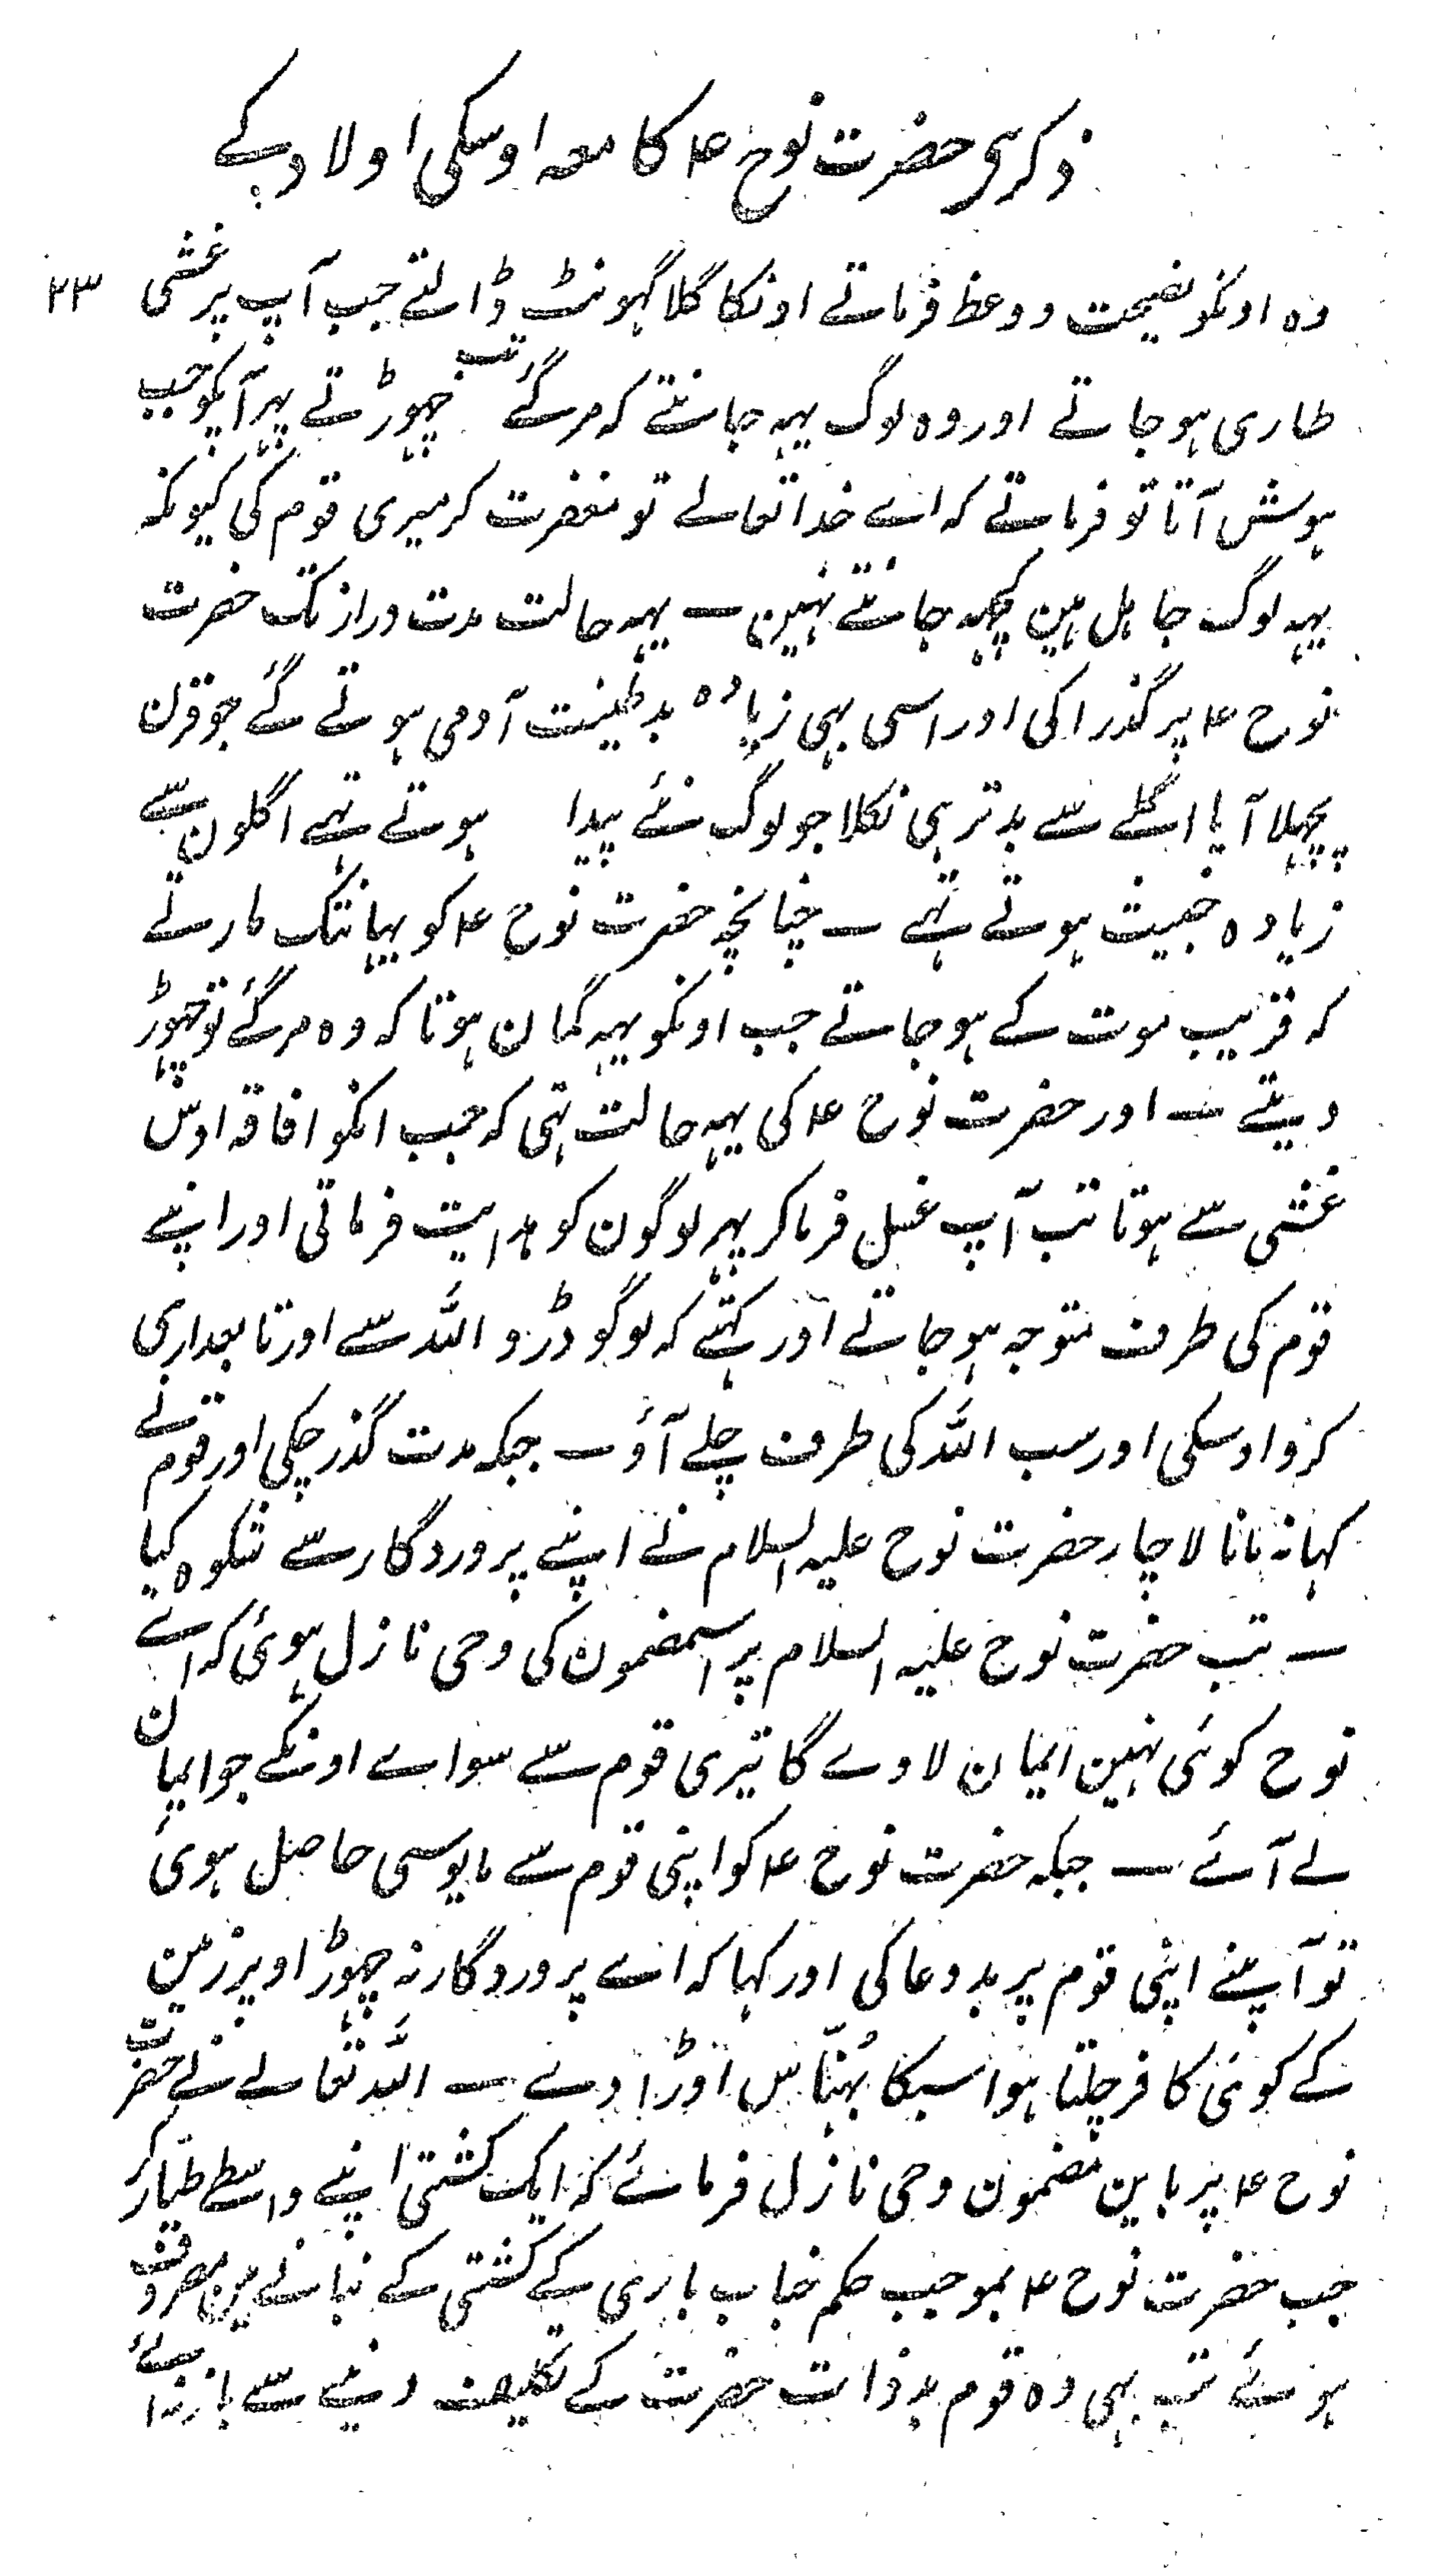 ذکر ہی حضرت نوح ؑ کا معہ اوسکی اولاد کے
۲۳
وہ اونکو نصیحت و وعظ فرماتے اونکا گلا گہونٹ ڈالتے جب آپ پر غشی
طاری ہو جاتے اور وہ لوگ یہہ جانتے کہ مر گئے تب چہوڑتے پہر آپکو جب
ہوش آتا تو فرماتے کہ اے خدا تعالے تو مغفرت کر میری قوم کی کیونکہ
یہہ لوگ جاہل ہین کچہہ جانتے نہین ــ یہہ حالت مدت دراز تک حضرت
نوح ؑ پر گذرا کی اور اسی بہی زیادہ بدطینت آدمی ہوتے گے جو قرن
پچہلا آیا اگلے سے بدتر ہی نکلا جو لوگ نئے پیدا ہوتے تہے اگلون سے
زیادہ خبیث ہوتے تہے ــ چنانچہ حضرت نوح ؑ کو یہانتک مارتے
کہ قریب موت کے ہو جاتے جب اونکو یہہ گمان ہوتا کہ وہ مر گئے تو چہوڑ
دیتے ــ اور حضرت نوح ؑ کی یہہ حالت تہی کہ جب انکو افاقہ اوس
غشی سے ہوتا تب آپ غسل فرما کر پہر لوگون کو ہدایت فرماتی اور اپنے
قوم کی طرف متوجہ ہو جاتے اور کہتے کہ لوگو ڈرو اللہ سے اور تابعداری
کرو اوسکی اور سب اللہ کی طرف چلے آؤ ــ جبکہ مدت گذر چکی اور قوم نے
کہا نہ مانا لاچار حضرت نوح علیہ السلام نے اپنے پروردگار سے شکوہ کیا
ــ تب حضرت نوح علیہ السلام پر اسمضمون کی وحی نازل ہوئی کہ اے
نوح کوئی نہین ایمان لاوے گا تیری قوم سے سواے اونکے جو ایمان
لے آئے ــ جبکہ حضرت نوح ؑ کو اپنی قوم سے مایوسی حاصل ہوئی
تو آپنے اپنی قوم پر بد دعا کی اور کہا کہ اے پروردگار نہ چہوڑ اوپر زمین
کے کوئی کافر چلتا ہوا سبکا بہناس اوڑا دے ــ اللہ تعالے نے حضرت
نوح ؑ پر باین مضمون وحی نازل فرمائے کہ ایک کشتی اپنے واسطے طیار کر
جب حضرت نوح ؑ بموجب حکم جناب باری کے کشتی کے بنانے مین مصروف
ہوئے تب بہی وہ قوم بدذات حضرت کے تکلیف دینے سے باز نہ آئے